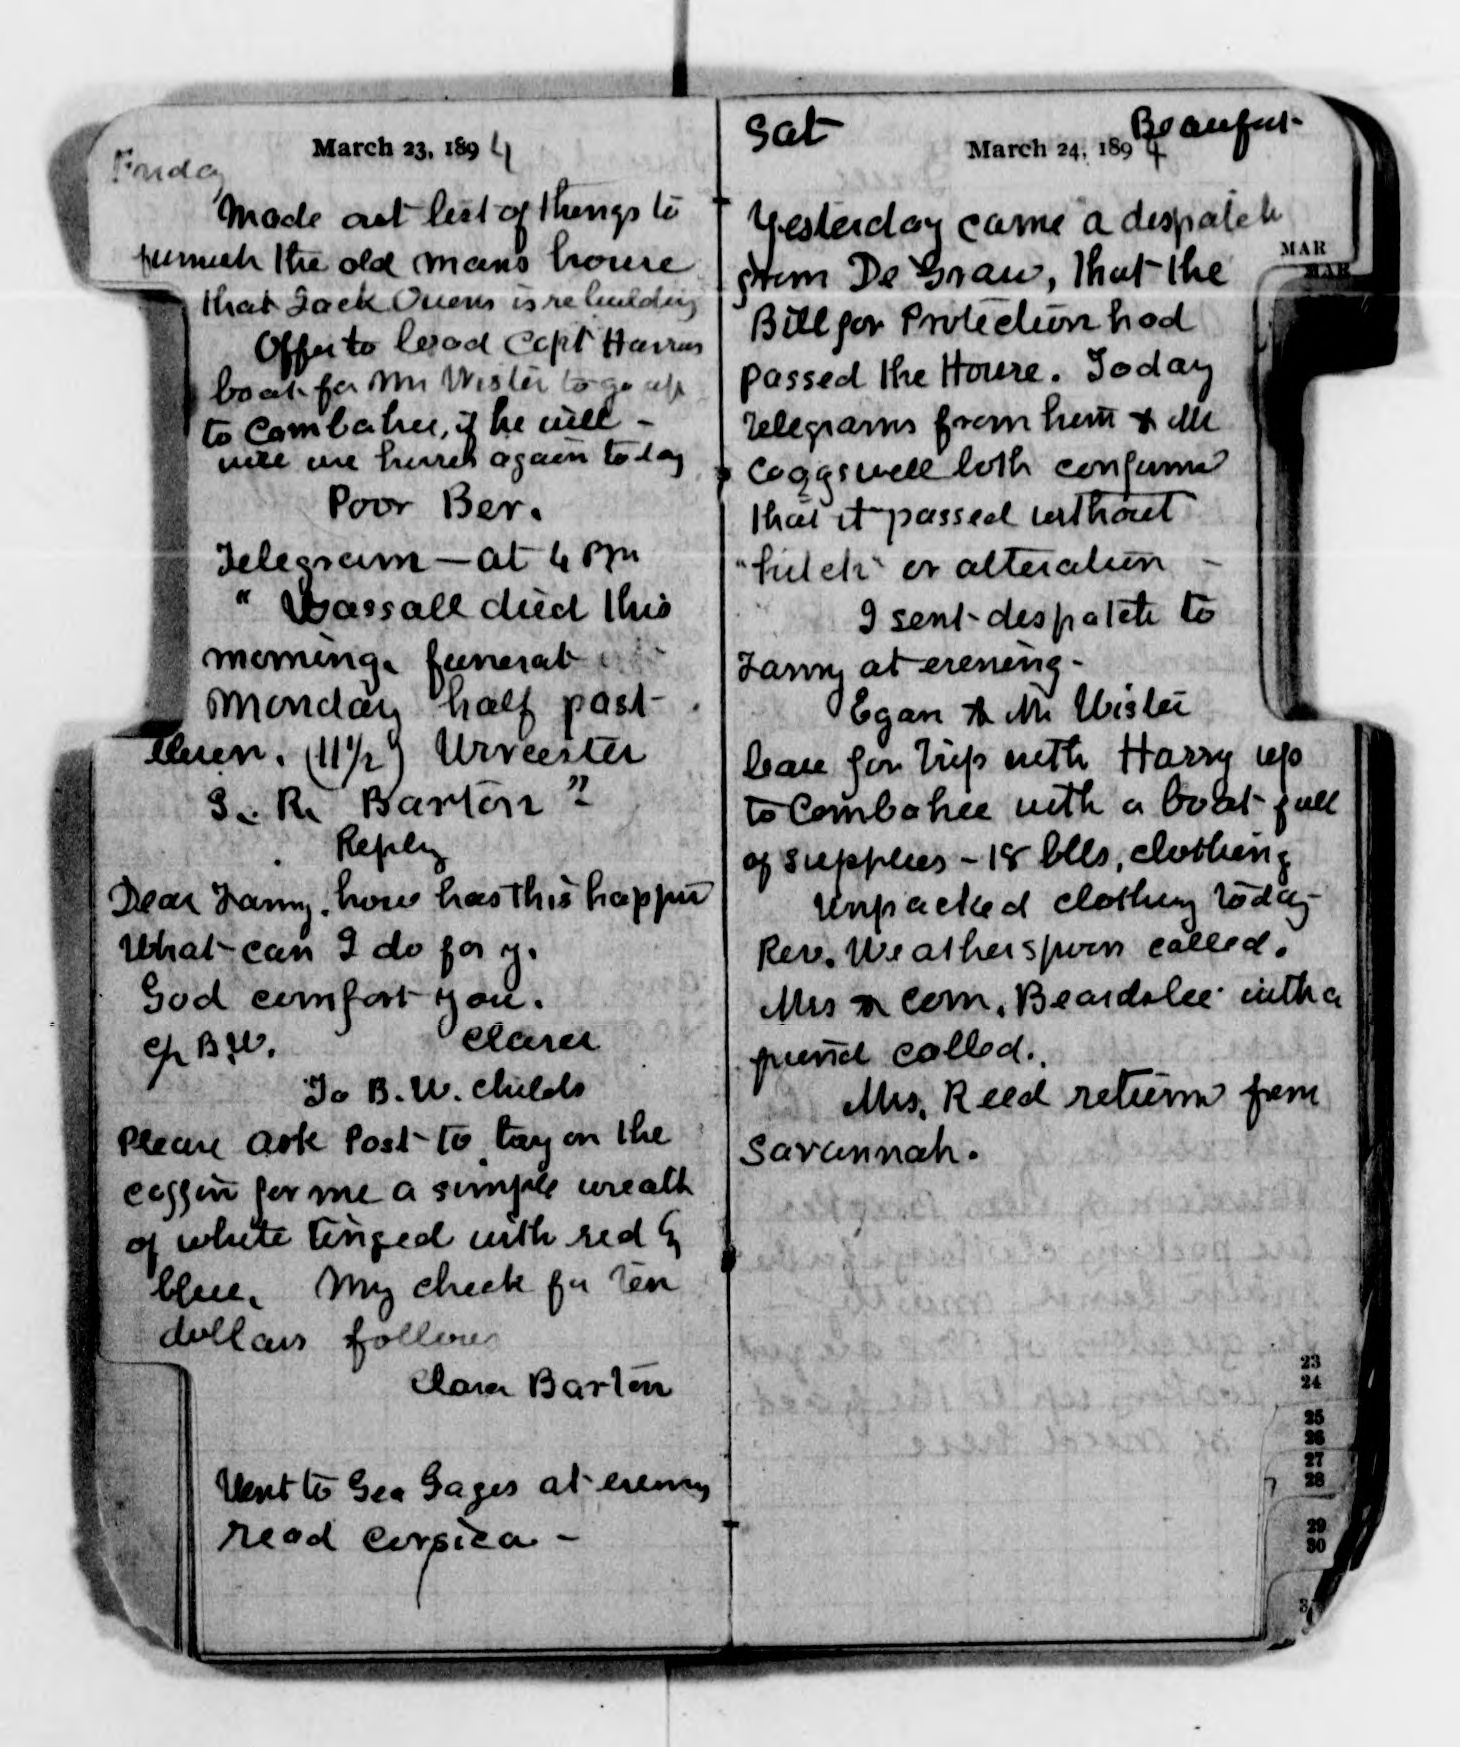 Friday
March 23, 1894
Made out list of things to
furnish the old mans house
that Jack Owens is rebuilding
Offer to load Capt Harrys
boat for Mr Wister to go up
to Combahee, if he will -
will use hirres again today
Poor Ber.
Telegram - at 4 PM
" Vassall died this
morning. funeral
Monday half past
Eleven. (11 1/2) Worcester
S. R. Barton "
Reply
Dear Fanny. how has this happn
What can I do for y.
God comfort you.
c/o B.W. Clara
To B. W. Childs
Please ask Post to lay on the
coffin for me a simple wreath
of white tinged with red &
blue. My check for ten
dollars follows
Clara Barton
Went to Geo Gages at evening
read Corsica -
Sat Beaufort
March 24, 1894
Yesterday came a despatch
from De Graw, that the
Bill for Protection had
passed the House. Today
telegrams from him & Mr
Coggswell both confirm
that it passed without
"hitch" or alteration -
I sent despatch to
Fanny at evening -
Egan & Mr Wister
leave for trip with Harry up
to Combahee with a boat full
of supplies - 18 bls, clothing
Unpacked clothing today -
Rev. Weatherspoon called.
Mrs & Com. Beardslee with a
friend called.
Mrs. Reed return from
Savannah.
MAR
MAR
23
24
25
26
27
28
29
30